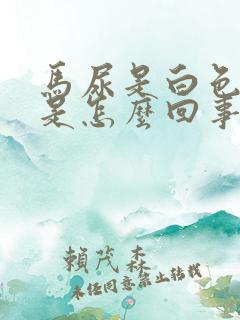 馬尿是白色
是怎麼回事
賴茂森
未经同意禁止转载